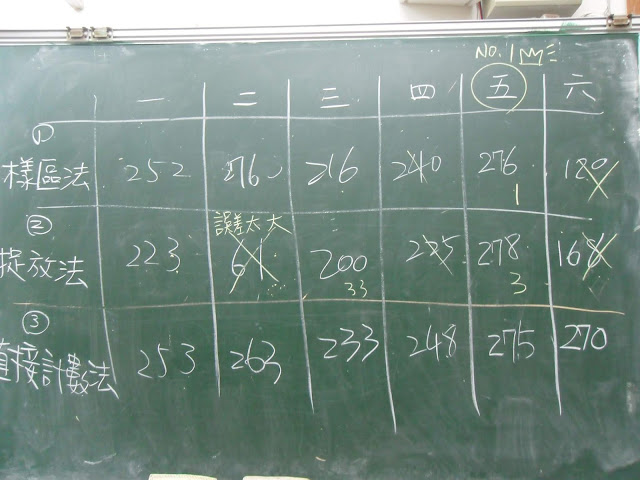 NO.1
一 二 三 四 五 六
①
樣區法 252 276 216 240 276 180
1
② 誤差太大
捉放法 223 61 200 225 278 168
33 3
③
直接計數法 253 263 233 248 275 270